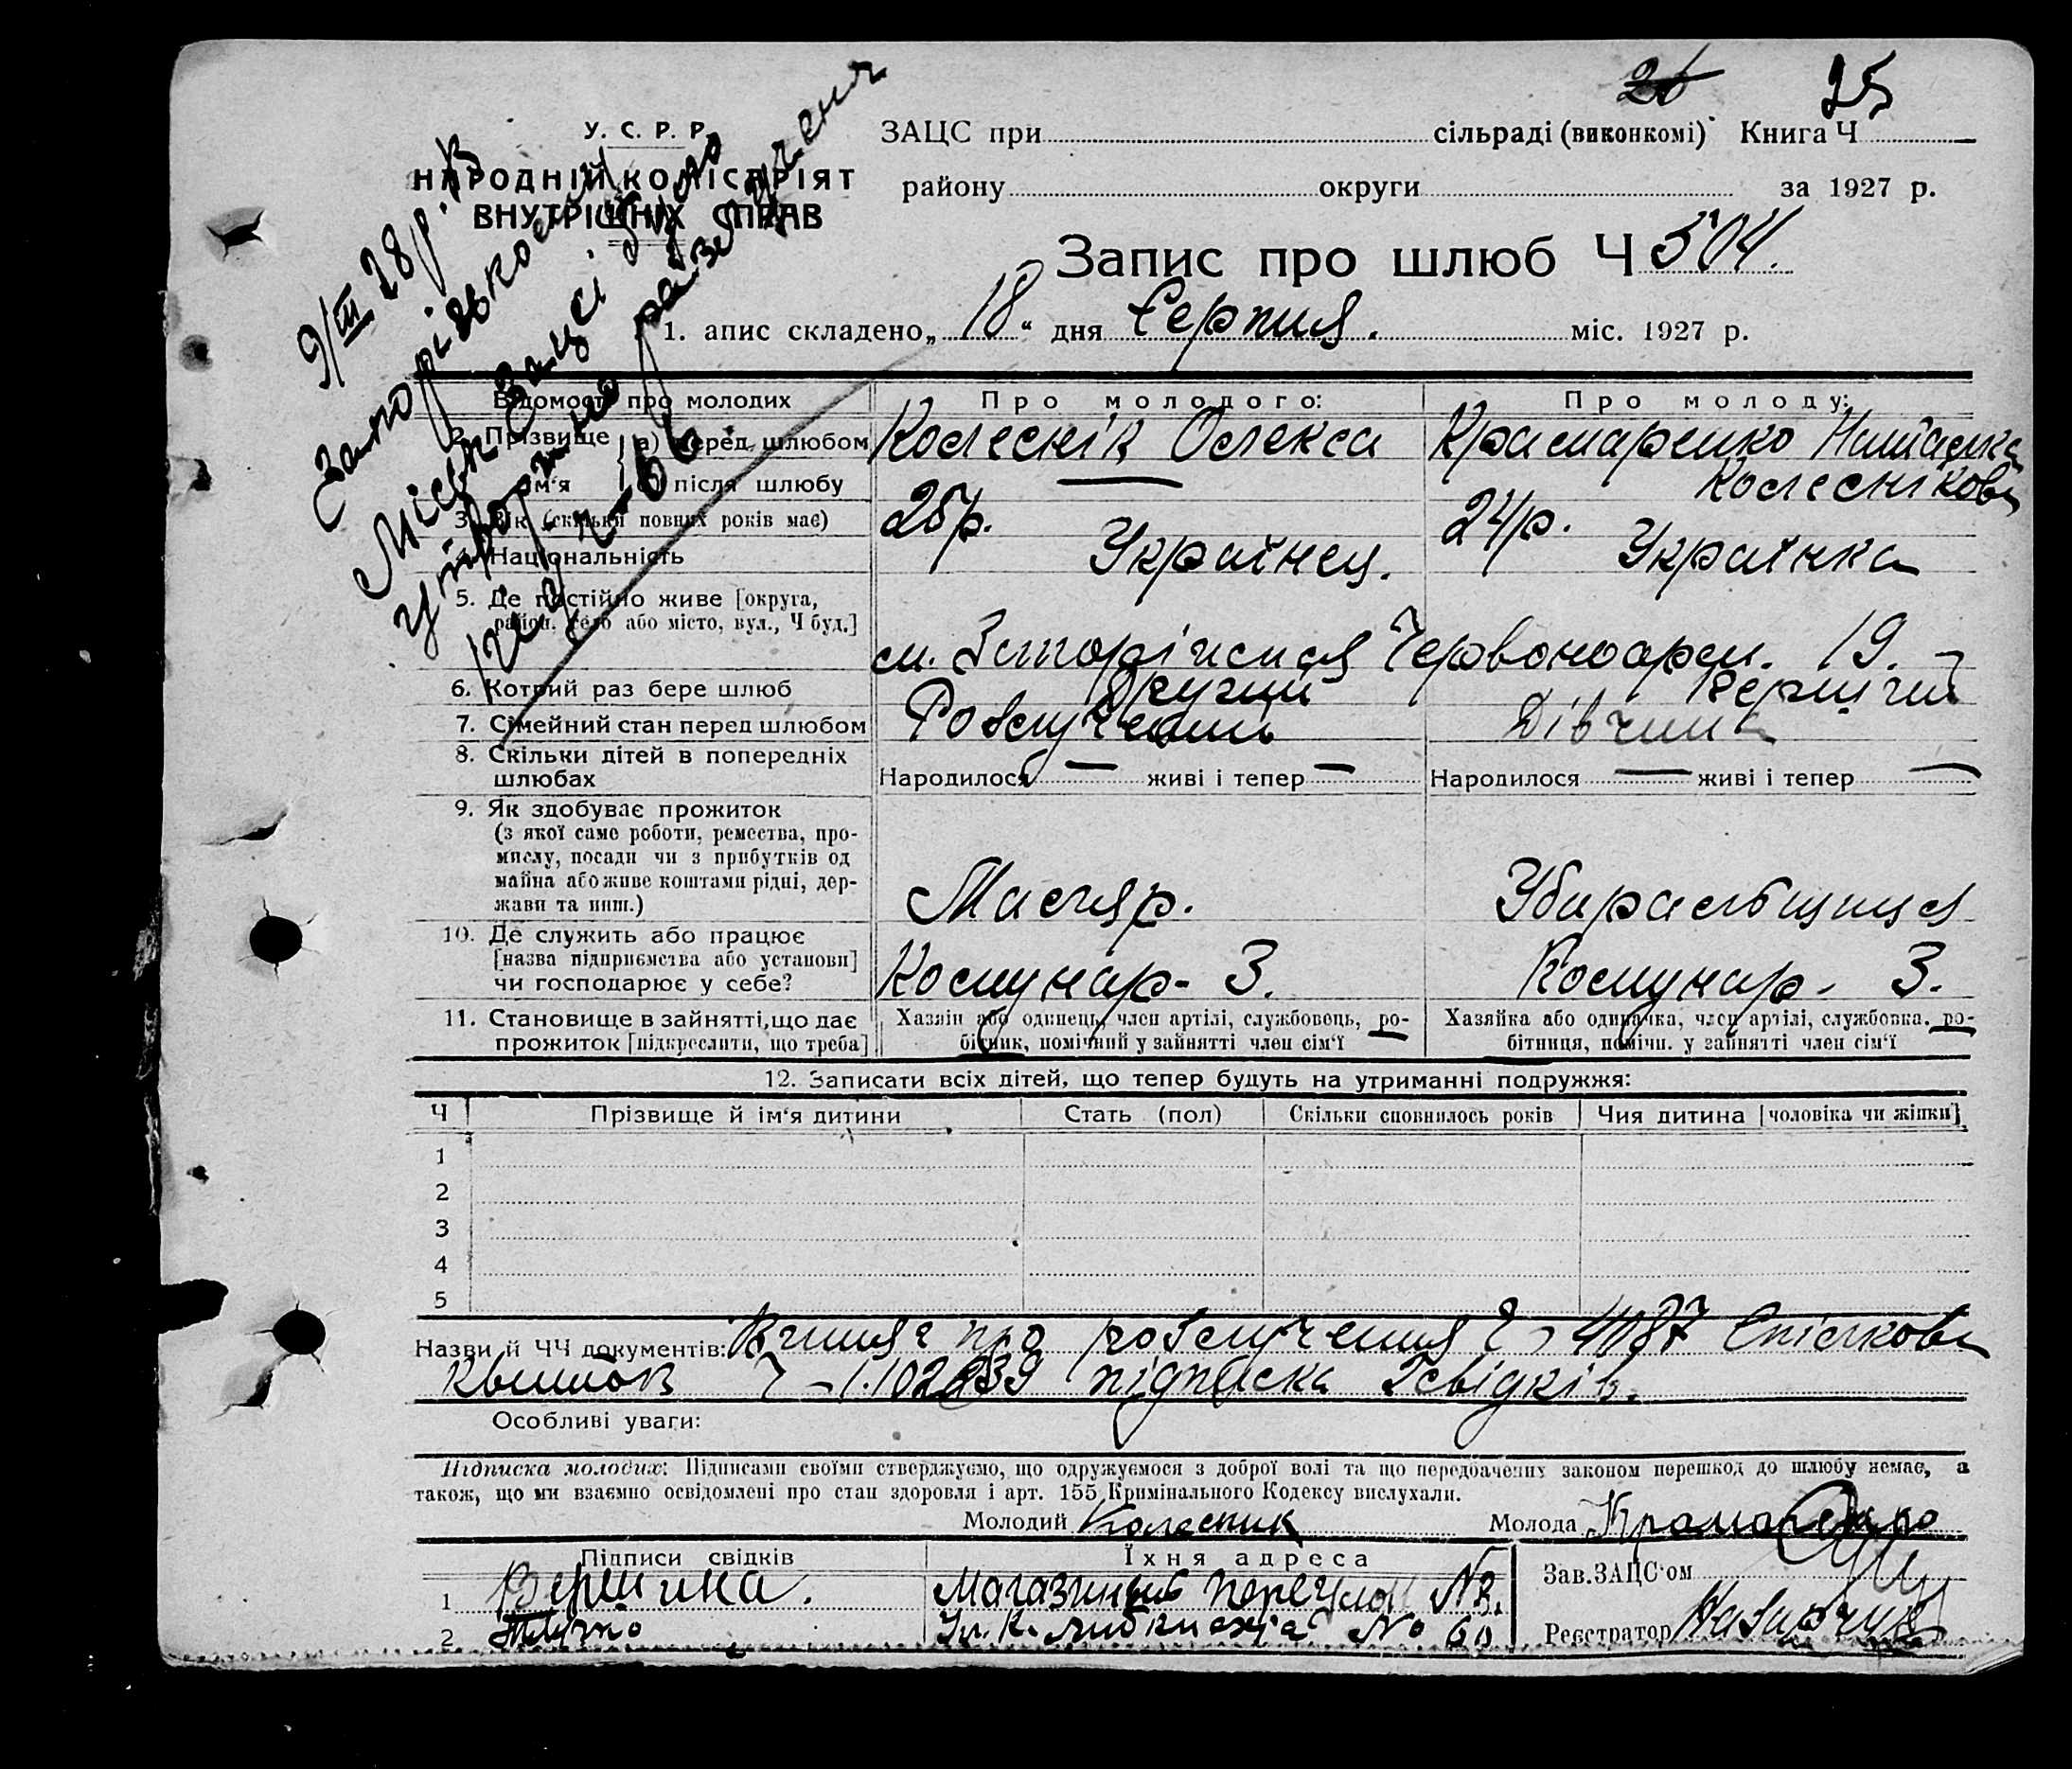 26 25
У. С. Р. Р.
НАРОДНІЙ КОМІСАРІЯТ
ВНУТРІШНІХ СПРАВ
ЗАЦС при сільраді (виконкомі) Книга Ч
району округи за 1927 р.
Запис про шлюб Ч 504.
9/III 28 р. В
Запорізькому
Міськ Зацсі було
розлучення
1. апис складено „18“ дня Серпня. міс. 1927 р.
Відомості про молодих Про молодого: Про молоду:
2. Прізвище а) перед шлюбом Колеснік Олекса Крамаренко Наталка
ім'я б) після шлюбу Колеснікова
3. Вік (скільки повних років має) 25 р. 24 р.
4. Національність Українец. Українка
5. Де постійно живе [округа,
район, село або місто, вул., Ч буд.]
м. Запоріжжя Червоноарм. 19.
6. Котрий раз бере шлюб Другий Перший
7. Сімейний стан перед шлюбом Розлучений Дівчина
8. Скільки дітей в попередніх
шлюбах Народилося — живі і тепер — Народилося — живі і тепер —
9. Як здобуває прожиток
(з якої саме роботи, ремества, про-
мислу, посади чи з прибутків од
майна або живе коштами рідні, дер-
жави та инш.) Масляр. Убиральщиця
10. Де служить або працює
[назва підприємства або установи]
чи господарює у себе? Комунар - З. Комунар - З.
11. Становище в зайнятті, що дає Хазяін або одинець, член артілі, службовець, ро- Хазяйка або одиначка, член артілі, службовка, ро-
прожиток [підкреслити, що треба] бітник, помічний у зайнятті член сім'ї бітниця, помічн. у зайнятті член сім'ї
12. Записати всіх дітей, що тепер будуть на утриманні подружжя:
Ч Прізвище й ім'я дитини Стать (пол) Скільки сповнилось років Чия дитина [чоловіка чи жінки]
1
2
3
4
5
Назви й ЧЧ документів: про розлучення Ч 4187 Спілкова
Квиток Ч підписка свідків.
Особливі уваги:
Підписка молодих: Підписами своїми стверджуємо, що одружуємося з доброї волі та що передбачених законом перешкод до шлюбу немає, а
також, що ми взаємно освідомлені про стан здоровля і арт. 155 Кримінального Кодексу вислухали.
Молодий Колесник Молода Крамаренко
Підписи свідків Їхня адреса Зав. ЗАЦС'ом
1 Вершина. Магазинный переулок №3.
2 Ул. К. Либкнехта № 60 Реєстратор